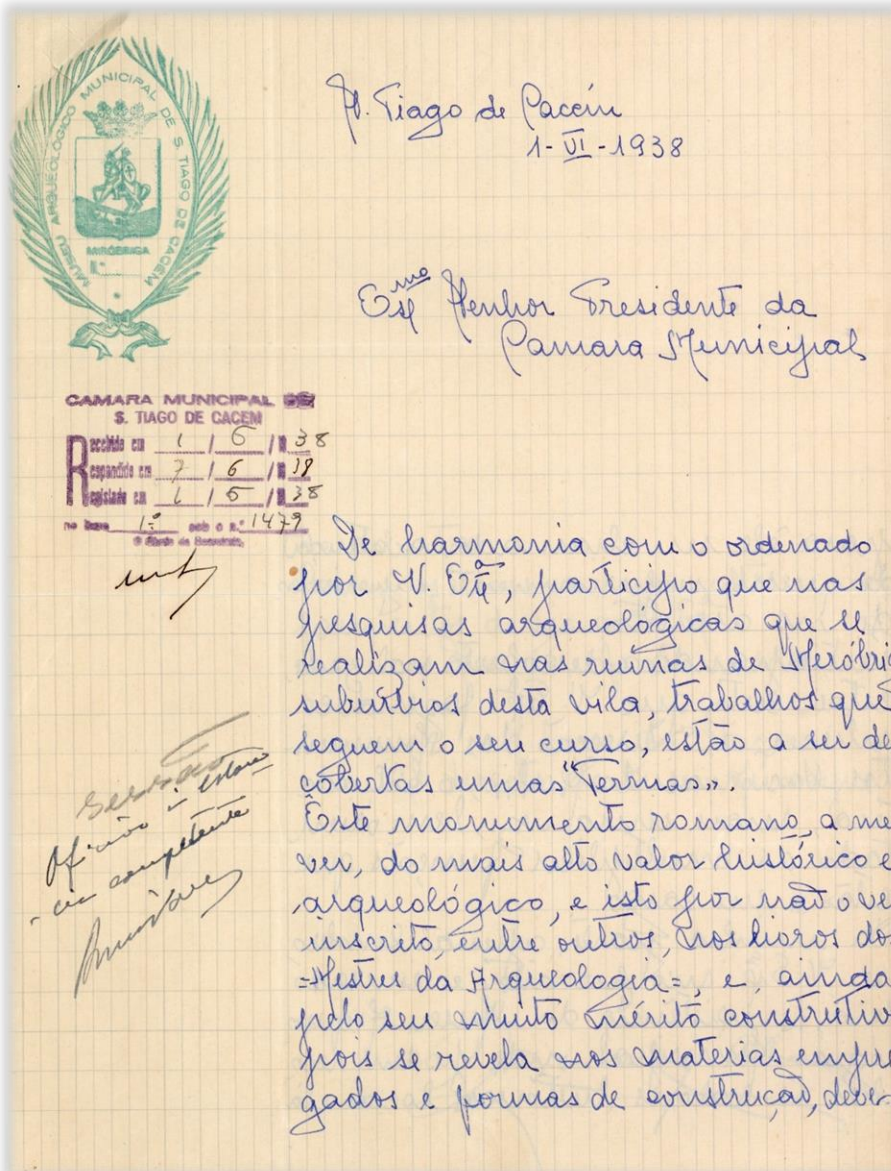 MUSEU ARQUEOLÓGICO MUNICIPAL DE S. TIAGO DE CACEM
MIRÓBRIGA
S. Tiago de Caceín
1-VI-1938
Exmo Senhor Presidente da
Camara Municipal
CAMARA MUNICIPAL DE
S. TIAGO DE CACEM
Recebido em 1 / 6 / 38
Respondido em 7 / 6 / 38
Registado em 1 / 6 / 38
no livro 1º sob o n.º 1479
O Chefe da Secretaria,
De harmonia com o ordenado
por V. Exª, participo que nas
pesquisas arqueológicas que se
realizam nas ruinas de Meróbri
suburbios desta vila, trabalhos que
seguem o seu curso, estão a ser de
cobertas umas "Termas".
Este monumento romano, a me
ver, do mais alto valor histórico e
arqueológico, e isto por não o ve
inscrito, entre outros, nos livros dos
=Mestres da Arqueologia=, e, ainda
pelo seu muito mérito construtivo
pois se revela nos materias empre
gados e formas de construção, deve-
sessão
Oficiado à estan-
cia competente